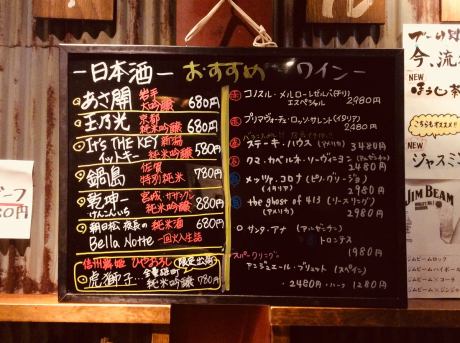 ー日本酒ー
おすすめ
ワインー
あさ開 岩手 大吟醸 680円
玉乃光 京都 純米吟醸 680円
It's THE KEY 新潟 純米吟醸 580円
イットキー
鍋島 佐賀 特別純米 780円
乾坤一 宮城 ササシグレ 純米吟醸 880円
けんこんいち
朝日松 夜長の 純米酒 680円
Bella Notte 一回火入生詰
信州舞姫 ひやおろし 限定出荷
虎獅子… 純米吟醸 780円
コノスル・メルローレゼルバ(チリ)
エスペシャル 2980円
プリマヴォーチェ・ロッソサレント(イタリア)
2480円
ステーキ・ハウス (アメリカ) 3480円
クマ・カベルネ・ソーヴィニヨン (アルゼンチン)
2480円
メッツァ・コロナ (ピノ・グリージョ)
(イタリア) 2980円
the ghost of 413 (リースリング)
(アメリカ) 2980円
サンタ・アナ (アルゼンチン)
トロンテス
1980円
スパークリング
(スペイン)
・2480円・ハーフ 1280円
今、流
NEW
ほうじ茶
こちらもオススメ!!
NEW
ジャスミ
JIM BEAM
ジムビームロック
ジムビームハイボール
ジムビームコーラ
ジムビームジンジャ